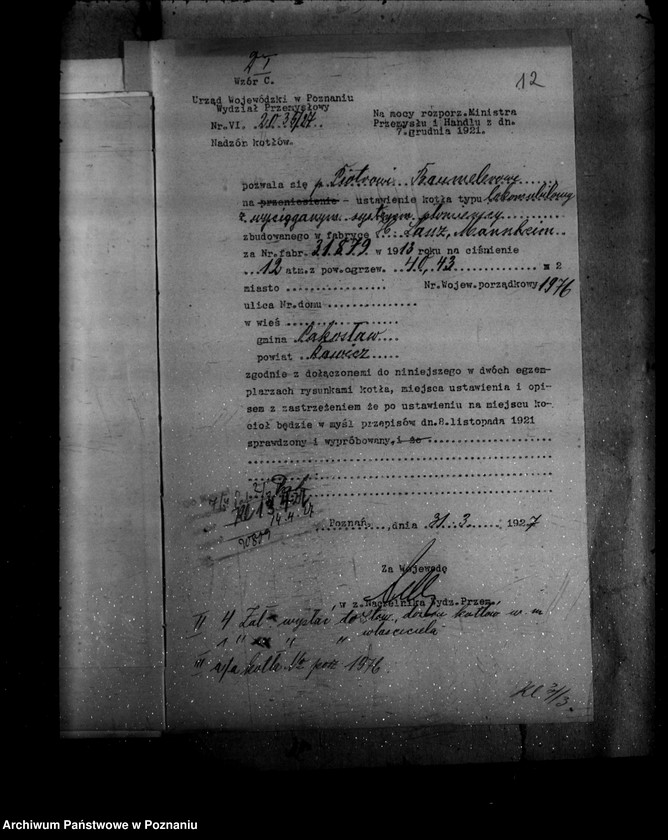 I
Wzór C.
12
Urząd Wojewódzki w Poznaniu
Wydział Przemysłowy
Nr.VI. 20 35/27
Nadzór kotłów.
Na mocy rozporz.Ministra
Przemysłu i Handlu z dn.
7.grudnia 1921.
pozwala się p. Piotrowi
na przeniesienie - ustawienie kotła typu lokomobilowy
z wyciąganym systemem
zbudowanego w fabryce Lanz, Mannheim
za Nr.fabr. 31879 w 1913 roku na ciśnienie
12 atm.z pow.ogrzew. 40,43 m 2
miasto
Nr.Wojew.porządkowy 1976
ulica Nr.domu
w wieś
gmina Łakosław
powiat Rawicz
zgodnie z dołączonemi do niniejszego w dwóch egzem-
plarzach rysunkami kotła, miejsca ustawienia i opi-
sem z zastrzeżeniem że po ustawieniu na miejscu ko-
cioł będzie w myśl przepisów dn.8.listopada 1921
sprawdzony i wypróbowany, i że
14.4.27
Poznań, dnia 31.3. 1927
Za Wojewodę
w z. Naczelnika Wydz.Przem.
II 4 Zał. wysłać do Stow. dozoru kotłów w. m
1 " " " właściciela
III a/a kotł. 1976
31/3.
Archiwum Państwowe w Poznaniu